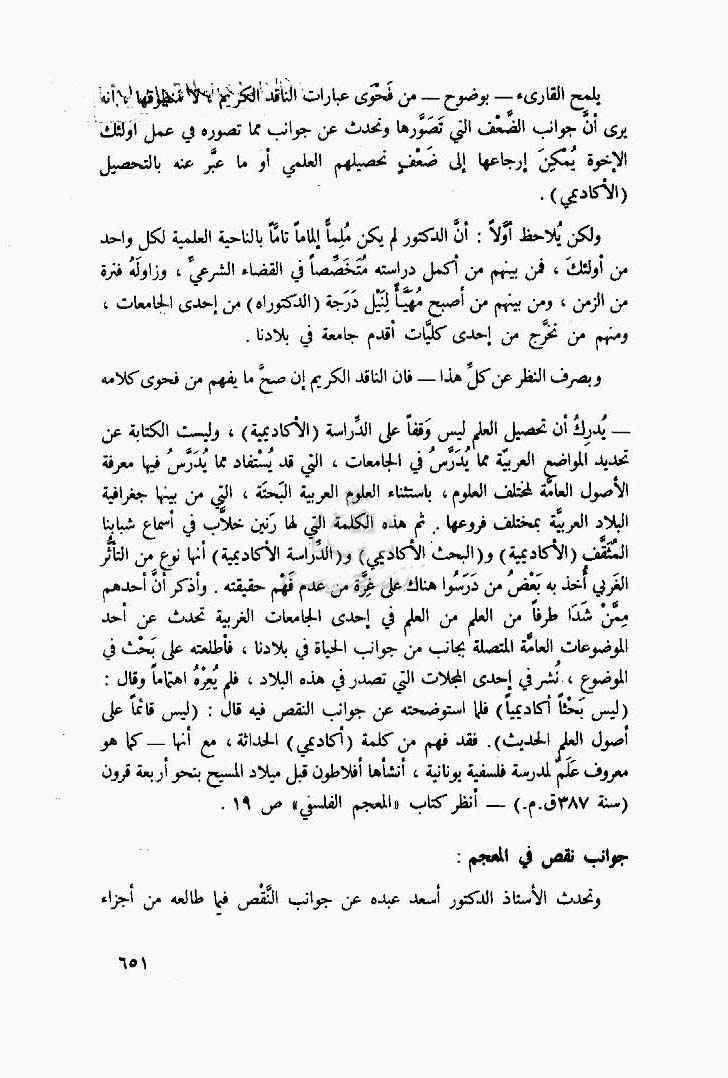 يلمح القارىء — بوضوح — من فَحْوَى عبارات الناقد الكريم ، لا منطوقها ، أنه
يرى أنَّ جوانب الضَّعْف التي تَصَوَّرها وتحدث عن جوانب مما تصوره في عمل اولئك
الإخوة يُمْكِنَ إرجاعها إلى ضَعْفٍ تحصيلهم العلمي أو ما عبَّر عنه بالتحصيل
(الأكاديمي) .
ولكن يُلاحظ أوَّلاً : أنَّ الدكتور لم يكن مُلِماًّ إلماماً تامَّاً بالناحية العلمية لكل واحد
من أولئكَ ، فمن بينهم من أكمل دراسته مُتَخَصِّصاً في القضاء الشرعيِّ ، وزاولَهُ فترة
من الزمن ، ومن بينهم من أصبح مُهَيَّأً لِنَيْل دَرَجة (الدكتوراه) من إحدى الجامعات ،
ومنهم من تخرَّج من إحدى كليَّات أقدم جامعة في بلادنا .
وبصرف النظر عن كلِّ هذا — فان الناقد الكريم إن صحَّ ما يفهم من فحوى كلامه
— يُدركُ أن تحصيل العلم ليس وَقفاً على الدِّراسة (الأكاديمية) ، وليست الكتابة عن
تحديد المواضع العربيّة مما يُدَرَّسُ في الجامعات ، التي قد يُسْتفاد مما يُدَرَّسُ فيها معرفة
الأصول العامَّة لمختلف العلوم ، باستثناء العلوم العربية البَحتَة ، التي من بينها جغرافية
البلاد العربيَّة بمختلف فروعها . ثم هذه الكلمة التي لها رَنين خلاَّب في أسماع شبابنا
المُثقَّف (الأكاديمية) و(البحث الأكاديمي) و(الدِّراسة الأكاديمية) أنها نوع من التأثُّر
الغَربي أُخذ به بَعْضُ من دَرَسُوا هناك على غِرَّة من عدم فَهْم حقيقته . وأذكر أنَّ أحدهم
مِمَّنْ شَدَا طرفاً من العلم من العلم في إحدى الجامعات الغربية تحدث عن أحد
الموضوعات العامَّة المتصلة بجانب من جوانب الحياة في بلادنا ، فأطلعته على بَحْث في
الموضوع ، نُشر في إحدى المجلات التي تصدر في هذه البلاد ، فلم يُعِرْهُ اهتماماً وقال :
(ليس بَحْثاً أكاديمياً) فلما استوضحته عن جوانب النقص فيه قال : (ليس قائماً على
أصول العلم الحديث). فقد فهم من كلمة (أكاديمي) الحداثة ، مع أنها — كما هو
معروف عَلَمٌ لمدرسة فلسفية يونانية ، أنشأها أفلاطون قبل ميلاد المسيح بنحو أربعة قرون
(سنة ٣٨٧ق.م.) — أنظر كتاب «المعجم الفلسفي» ص ١٩ .
جوانب نقص في المعجم :
وتحدث الأستاذ الدكتور أسعد عبده عن جوانب النَّقْص فيما طالعه من أجزاء
٦٥١